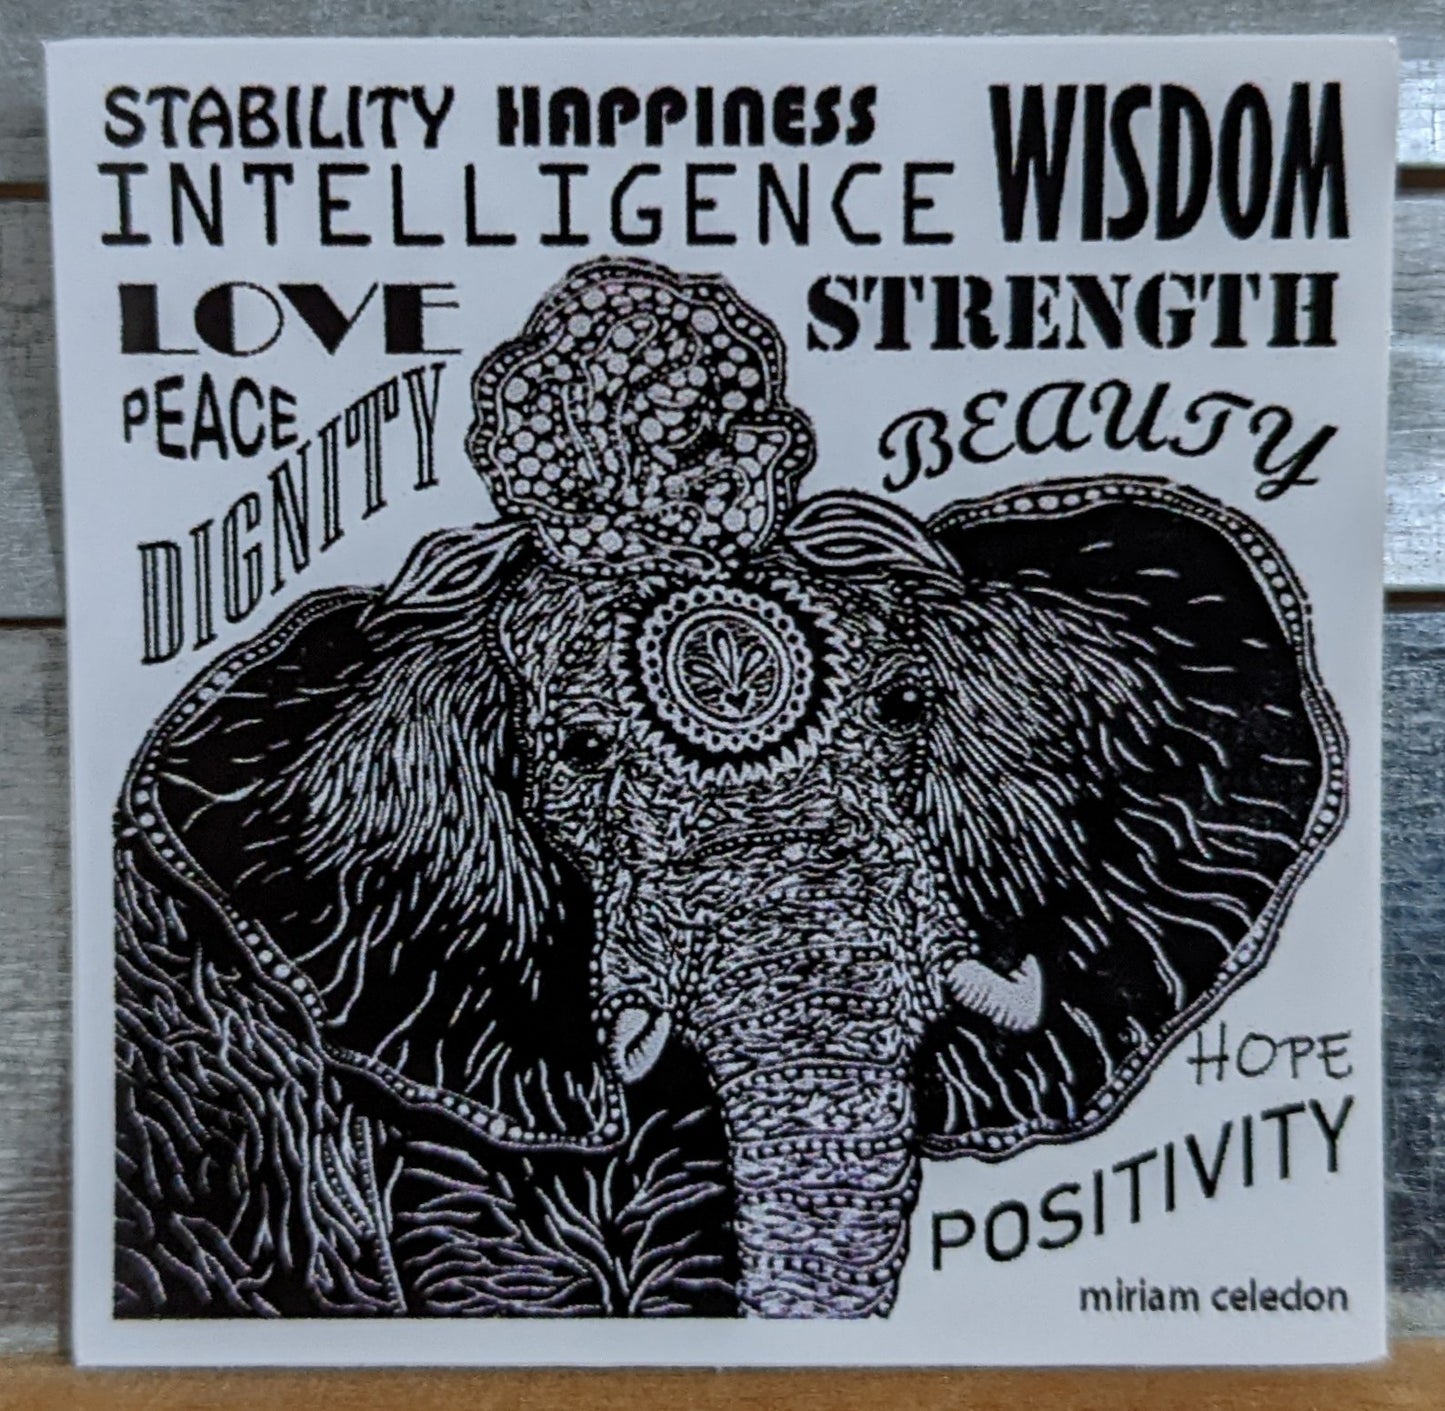 STABILITY HAPPINESS WISDOM
INTELLIGENCE
LOVE STRENGTH
PEACE BEAUTY
DIGNITY
HOPE
POSITIVITY
miriam celedon